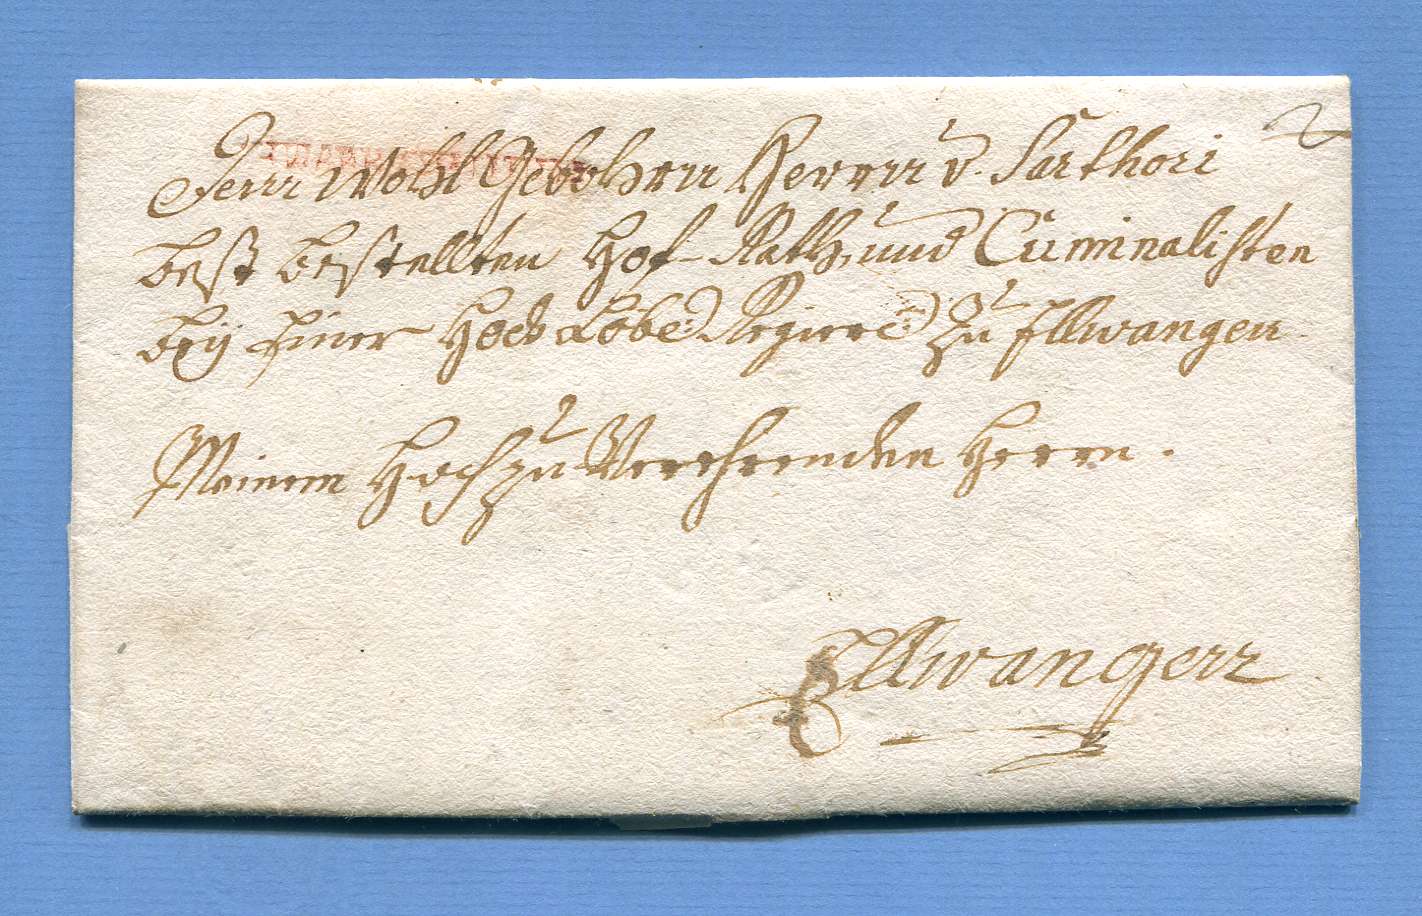 Dem WohlGebohrnen Herrn v. Sarthori
best bestellten Hof-Rath, und Criminalisten
bey Einer HochLöbe: Regiere: Zu Ellwangen
Meinem HochzuVerehrenden Herrn.
Ellwangen